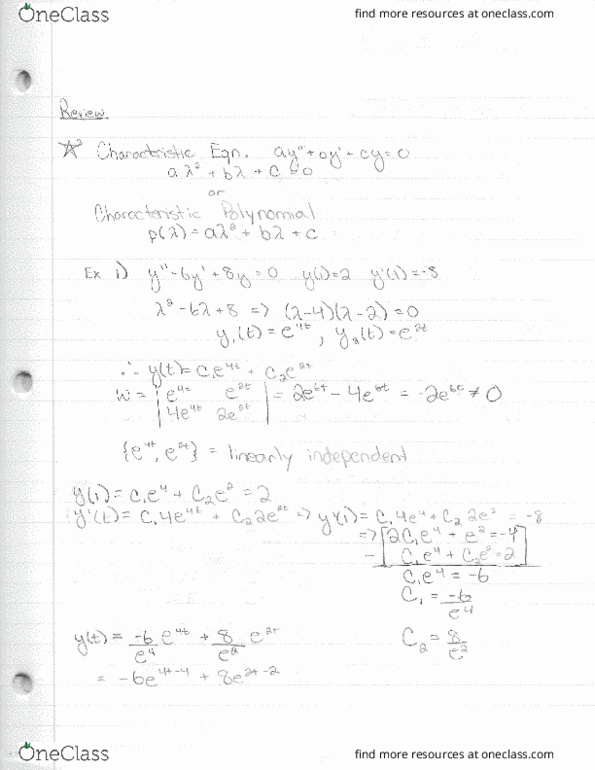 OneClass
find more resources at oneclass.com
Review
Characteristic Eqn. ay''+by'+cy=0
aλ²+bλ+c=0
or
Characteristic Polynomial
p(λ)=aλ²+bλ+c
Ex 1) y''-6y'+8y=0 y(1)=2 y'(1)=-8
λ²-6λ+8 => (λ-4)(λ-2)=0
y₁(t)=e^4t, y₂(t)=e^2t
∴ y(t)=c₁e^4t + c₂e^2t
W = | e^4t e^2t | = 2e^6t - 4e^6t = -2e^6t ≠ 0
| 4e^4t 2e^2t |
{e^4t, e^2t} = linearly independent
y(1)=c₁e^4 + c₂e^2 = 2
y'(t)=c₁4e^4t + c₂2e^2t => y'(1)=c₁4e^4+c₂2e^2 = -8
=> [2c₁e^4 + e^2=-4]
- [c₁e^4 + c₂e^2=2]
c₁e^4 = -6
c₁ = -6/e^4
y(t) = -6/e^4 e^4t + 8/e^2 e^2t c₂ = 8/e^2
= -6e^4t-4 + 8e^2t-2
OneClass
find more resources at oneclass.com